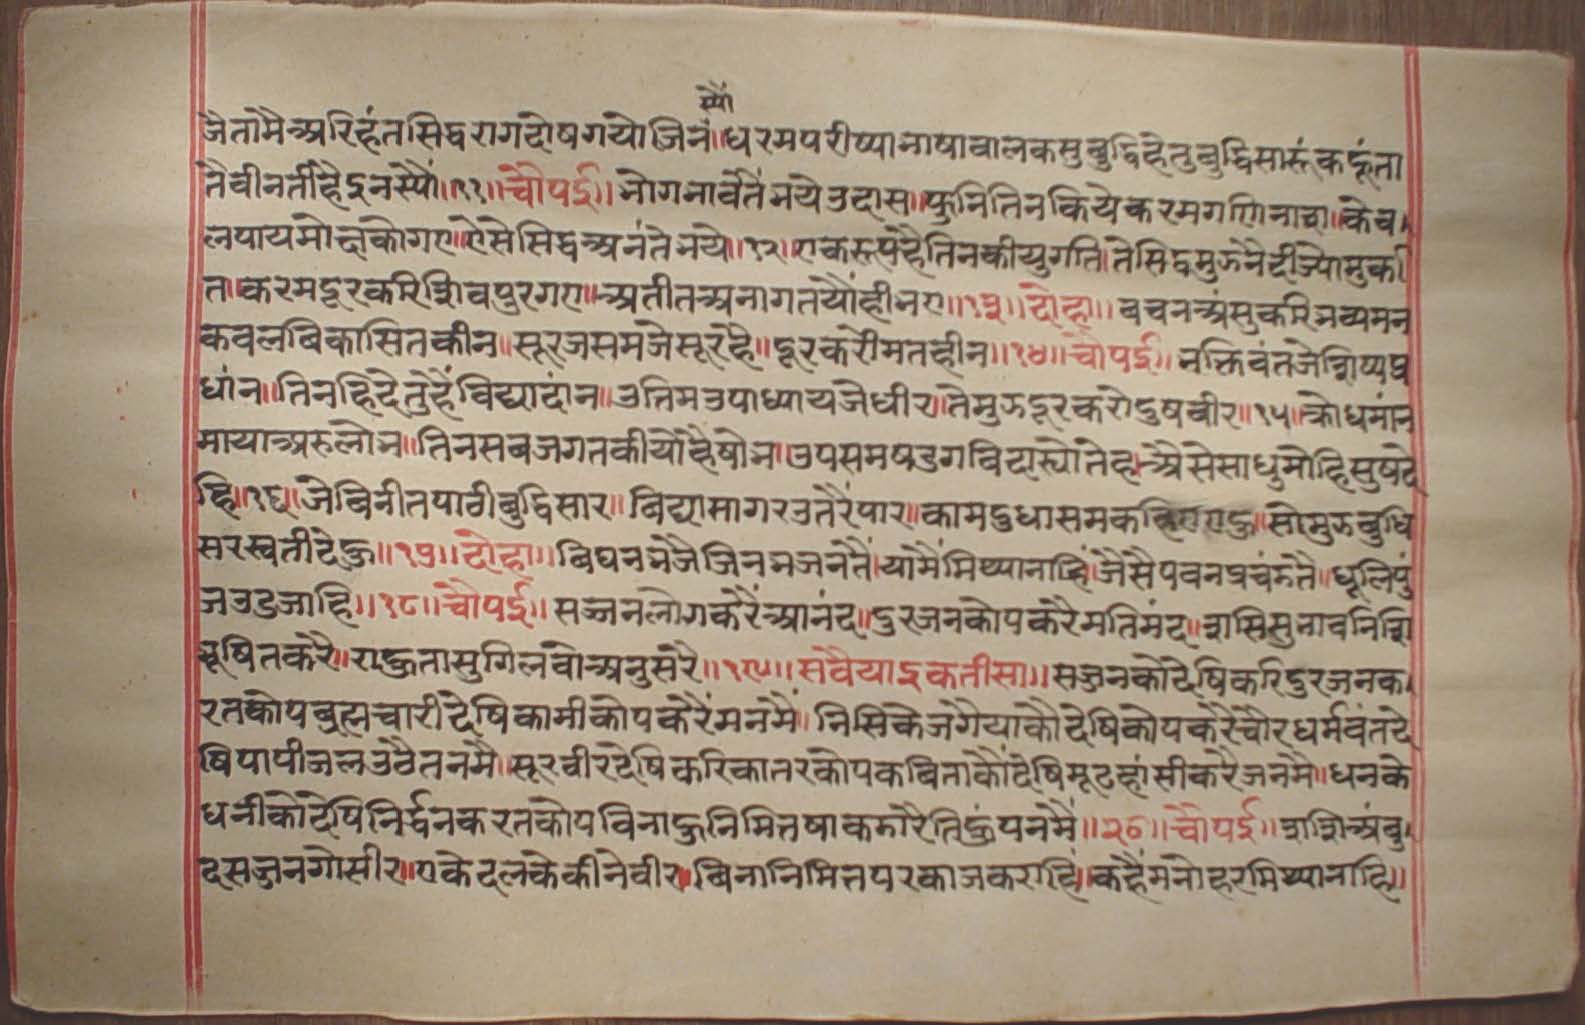 स्यौं
जैतामैअरिहंतसिद्धरागदोषगयोजिनं॥धरमपरीष्याभाषाबालकसुबुद्धिहेतुबुद्धिसारुंकहूंता
तैवीनतीहैइनस्यौं॥११॥चौपई॥भोगभावतैंभयेउदास॥फुनितिनकियेकरमगणनाश॥केव
लपायमोक्षकोगए॥ऐसेसिद्धअनंतेभये॥१२॥एकरूपहैतिनकीयुगति॥तेसिद्धमुझनैदीज्योमुक
ति॥करमदूरकरिशिवपुरगए॥अतीतअनागतयौंहीभए॥१३॥दोहा॥बचनअंसुकरिभव्यमन
कवलबिकासितकीन॥सूरजसमजेसूरहै॥दूरकरौमतहीन॥१४॥चौपई॥भक्तिवंतजेशिष्यप्र
धांन॥तिनहिदेतुहैंविद्यादांन॥उत्तिमउपाध्यायजेधीर॥तेमुझदूरकरोदुषवीर॥१५॥क्रोधमांन
मायाअरुलोभ॥तिनसबजगतकीयोहैषोभ॥उपसमषडगबिदास्योतेह॥ऐसेसाधुमोहिसुषदे
हि॥१६॥जेबिनीतपाठीबुद्धिसार॥बिद्यासागरउतरैंपार॥कामदुधासमकहिएएहु॥सोमुझबुधि
सरस्वतीदेहु॥१७॥दोहा॥बिघनभजैजिनभजनतैं॥यामैंमिथ्यानाहिं॥जैसैपवनप्रचंडतै॥धूलिपुं
जउडजाहि॥१८॥चौपई॥सज्जनलोगकरैंआनंद॥दुरजनकोपकरैमतिमंद॥शसिसुभावनिशि
भूषितकरै॥राहुतासुगिलवोअनुसरै॥१९॥सवैयाइकतीसा॥सज्जनकौदेषिकरिदुरजनक
रतकोपब्रह्मचारीदेषिकामीकोपकरैंमनमैं॥निसिकेजगैयाकौदेषिकोपकरैचौरधर्मवंतदे
षिपापीजलउठैतनमै॥सूरवीरदेषिकरिकातरकोपकबिताकौंदेषिमूढहांसीकरैजनमै॥धनके
धनीकौदेषिनिर्द्धनकरतकोपविनाहुनिमित्तषाकडारैतिहुंपनमैं॥२०॥चौपई॥शशिअंबु
दसज्जनगोसीर॥एकेदलकेकीनेवीर॥बिनानिमित्तपरकाजकराहिं॥कहैंमनोहरमिथ्यानाहि॥